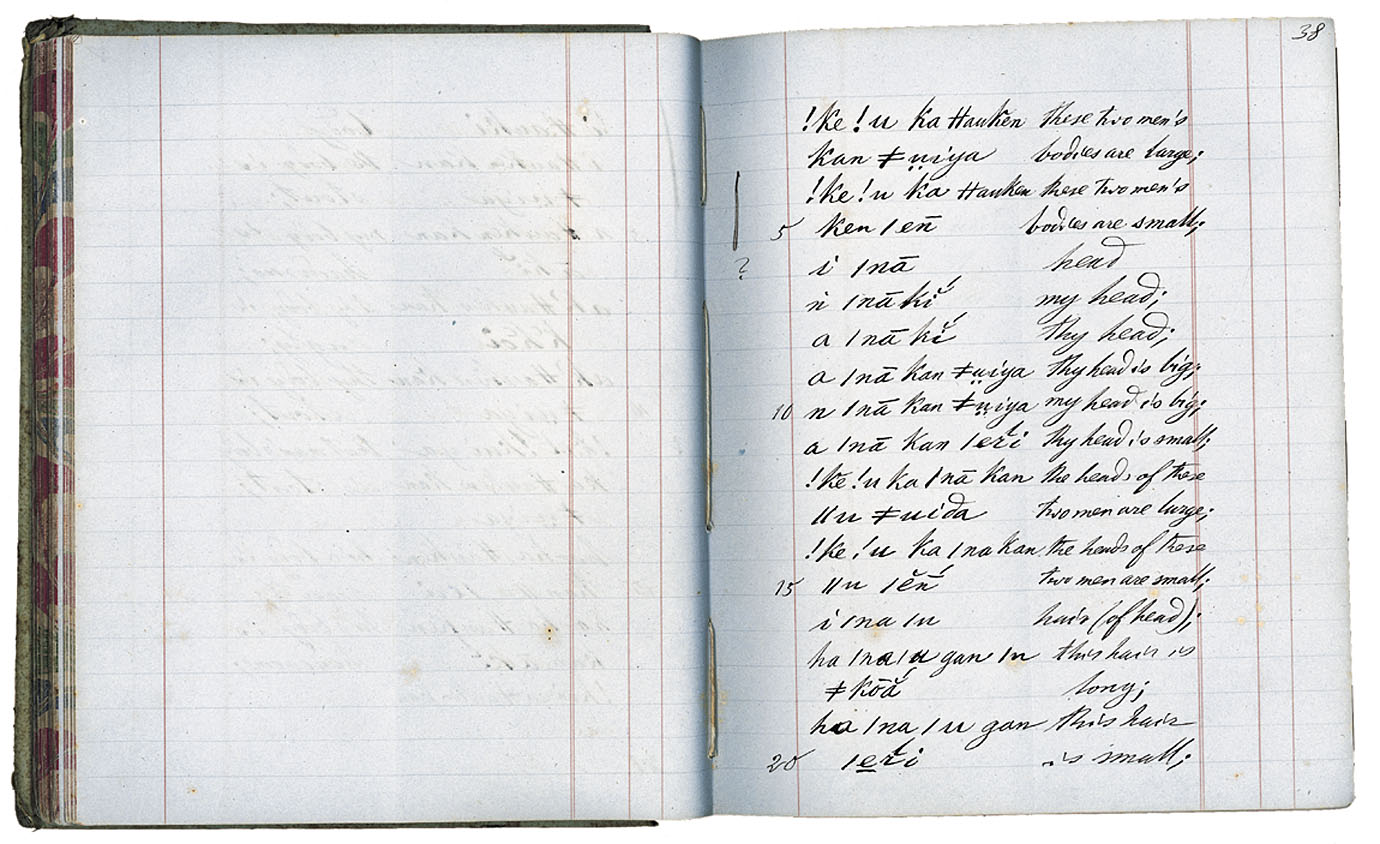 38
!kĕ !u ka ǂauken these two men's
kan ǂṳiya bodies are large;
!ke !u ka ǂauken these two men's
5 ken |eñ bodies are small;
? i |nā head
n |nā kĭ́ my head;
a |nā kĭ́ thy head;
a |nā kan ǂṳiya thy head is big;
10 n |nā kan ǂṳiya my head is big;
a |nā kan |eŕi thy head is small;
!kĕ !u ka |nā kan the heads of these
ǁu ǂuida two men are large;
!ke !u ka |na kan the heads of these
15 ǁu |ĕñ two men are small;
i |na |u hair (of head);
ha |na |u gan |u this hair is
ǂkōắ long;
ha |na |u gan this hair
20 |e̱ŕi is small;